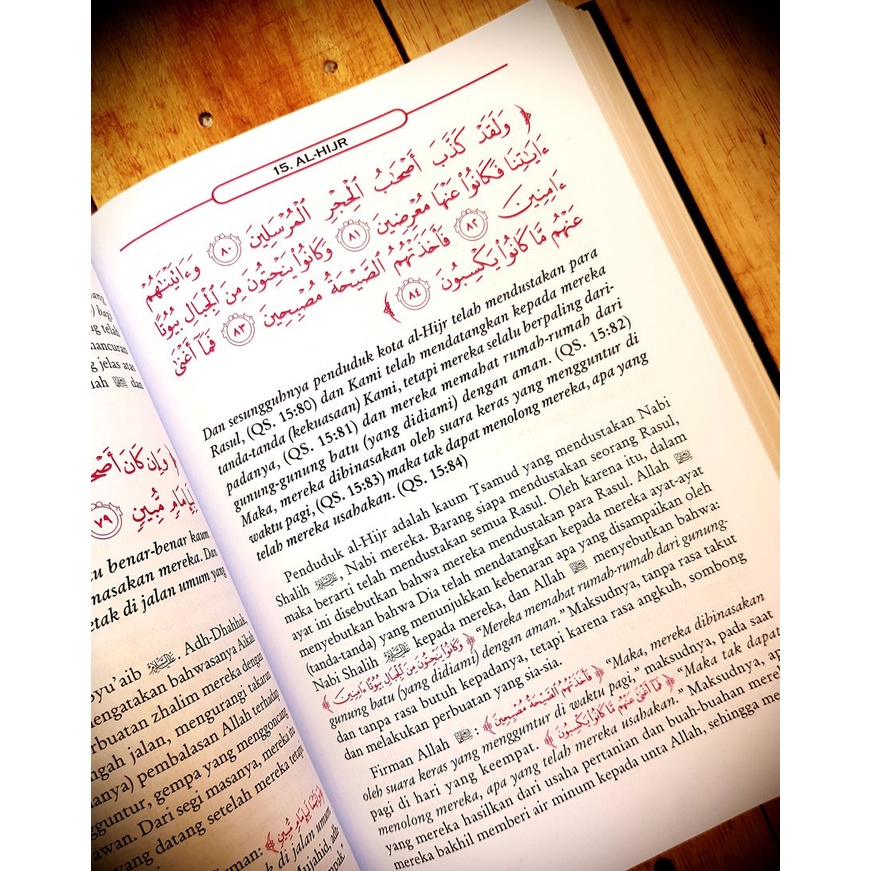 ang
) bagi
g telah
ancuran
g jelas atas
tah ﷺ dan
﴿ وَإِن كَانَ أَصْحَ
لَبِإِمَامٍ مُّبِينٍ ٧٩
u benar-benar kaum
nasakan mereka. Dan
etak di jalan umum yang
Syu'aib . Adh-Dhahhak,
engatakan bahwasanya Aikah
rbuatan zhalim mereka dengan
ngah jalan, mengurangi takaran
anya) pembalasan Allah terhadap
guntur, gempa yang mengguncang
awan. Dari segi masanya, mereka ini
yang datang setelah mereka tetapi
rman:
h di jalan umum
Mujahid, adh
mpak."
15. AL-HIJR
﴿ وَلَقَدْ كَذَّبَ أَصْحَٰبُ ٱلْحِجْرِ ٱلْمُرْسَلِينَ ٨٠ وَءَاتَيْنَٰهُمْ
ءَايَٰتِنَا فَكَانُوا۟ عَنْهَا مُعْرِضِينَ ٨١ وَكَانُوا۟ يَنْحِتُونَ مِنَ ٱلْجِبَالِ بُيُوتًا
ءَامِنِينَ ٨٢ فَأَخَذَتْهُمُ ٱلصَّيْحَةُ مُصْبِحِينَ ٨٣ فَمَآ أَغْنَىٰ
عَنْهُم مَّا كَانُوا۟ يَكْسِبُونَ ٨٤ ﴾
Dan sesungguhnya penduduk kota al-Hijr telah mendustakan para
Rasul, (QS. 15:80) dan Kami telah mendatangkan kepada mereka
tanda-tanda (kekuasaan) Kami, tetapi mereka selalu berpaling dari-
padanya, (QS. 15:81) dan mereka memahat rumah-rumah dari
gunung-gunung batu (yang didiami) dengan aman. (QS. 15:82)
Maka, mereka dibinasakan oleh suara keras yang mengguntur di
waktu pagi, (QS. 15:83) maka tak dapat menolong mereka, apa yang
telah mereka usahakan. (QS. 15:84)
Penduduk al-Hijr adalah kaum Tsamud yang mendustakan Nabi
Shalih , Nabi mereka. Barang siapa mendustakan seorang Rasul,
maka berarti telah mendustakan semua Rasul. Oleh karena itu, dalam
ayat ini disebutkan bahwa mereka mendustakan para Rasul. Allah
menyebutkan bahwa Dia telah mendatangkan kepada mereka ayat-ayat
(tanda-tanda) yang menunjukkan kebenaran apa yang disampaikan oleh
Nabi Shalih kepada mereka, dan Allah menyebutkan bahwa:
﴿ وَكَانُوا۟ يَنْحِتُونَ مِنَ ٱلْجِبَالِ بُيُوتًا ءَامِنِينَ ﴾ "Mereka memahat rumah-rumah dari gunung-
gunung batu (yang didiami) dengan aman." Maksudnya, tanpa rasa takut
dan tanpa rasa butuh kepadanya, tetapi karena rasa angkuh, sombong
dan melakukan perbuatan yang sia-sia.
Firman Allah : ﴿ فَأَخَذَتْهُمُ ٱلصَّيْحَةُ مُصْبِحِينَ ﴾ "Maka, mereka dibinasakan
oleh suara keras yang mengguntur di waktu pagi," maksudnya, pada saat
pagi di hari yang keempat. ﴿ فَمَآ أَغْنَىٰ عَنْهُم مَّا كَانُوا۟ يَكْسِبُونَ ﴾ "Maka tak dapat
menolong mereka, apa yang telah mereka usahakan." Maksudnya, ap
yang mereka hasilkan dari usaha pertanian dan buah-buahan mere
mereka bakhil memberi air minum kepada unta Allah, sehingga me